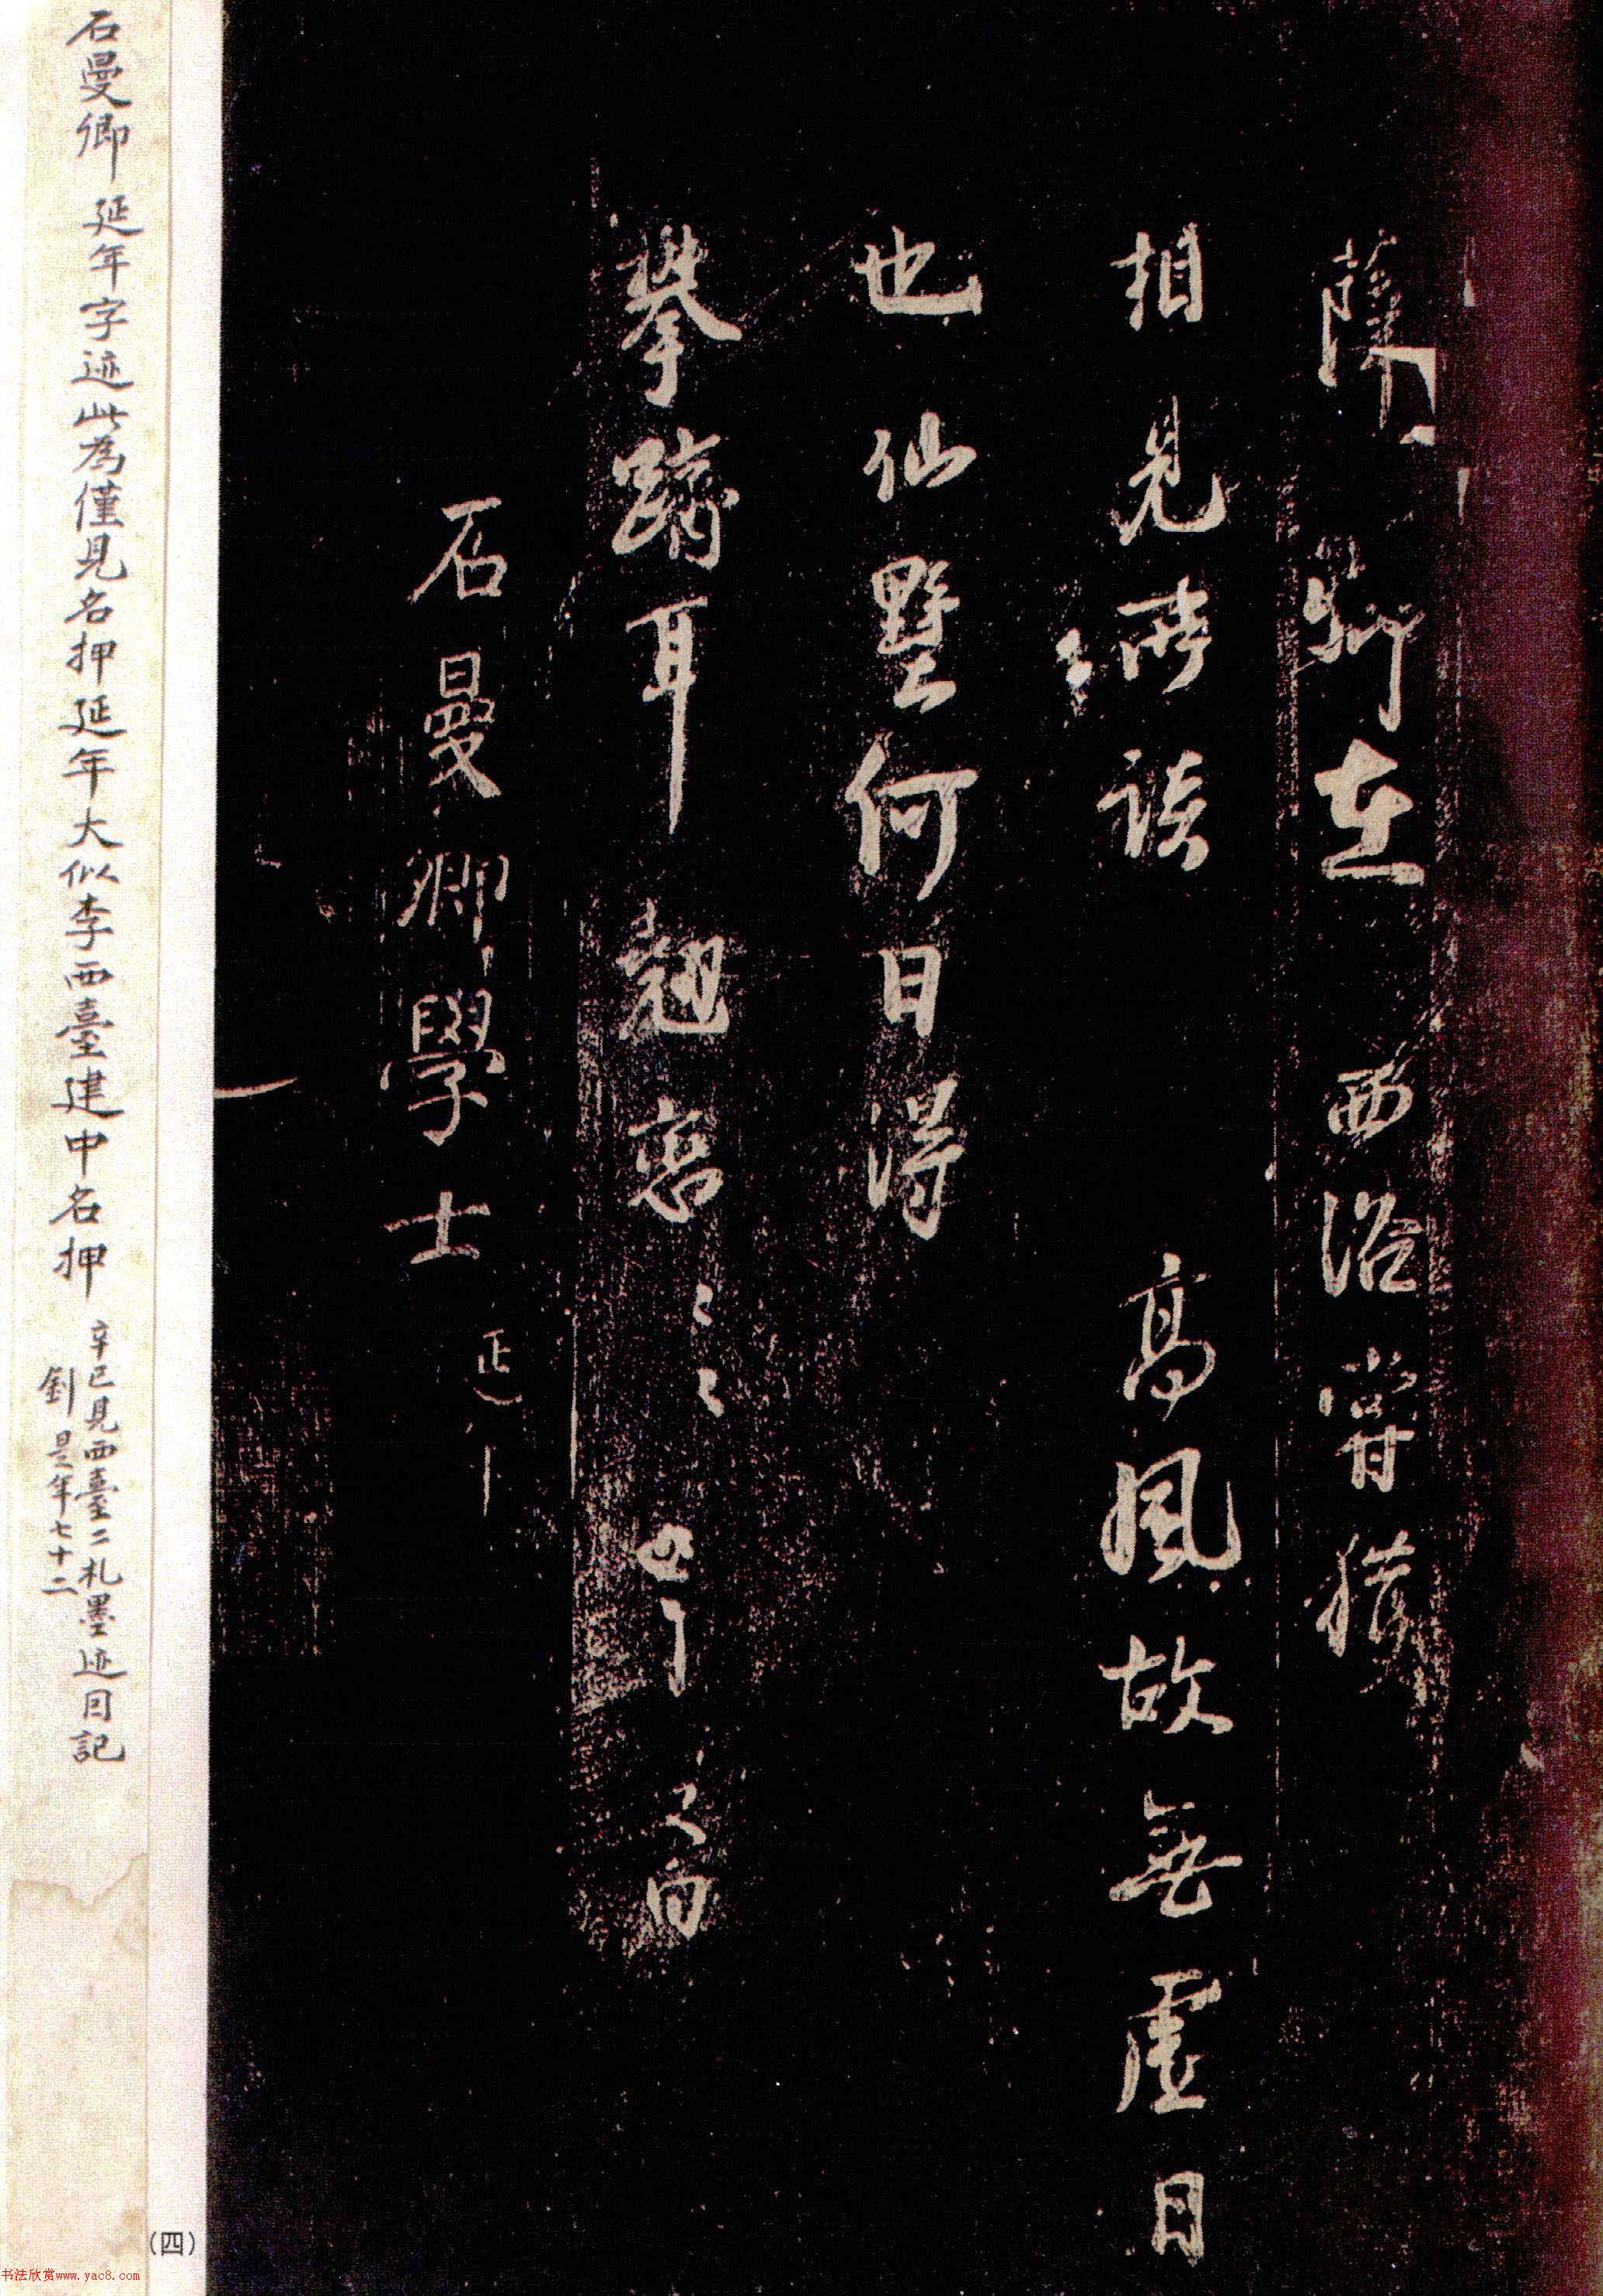 薛卿在 西洛嘗猒
相見時談 高風故無虛日
也仙墅何日得
攀躋耳翹企
石曼卿學士
石曼卿延年字迹此為僅見名押延年大似李西臺建中名押
辛巳見西臺二札墨迹同記
劉 是年七十二
(四)
书法欣赏www.yac8.com